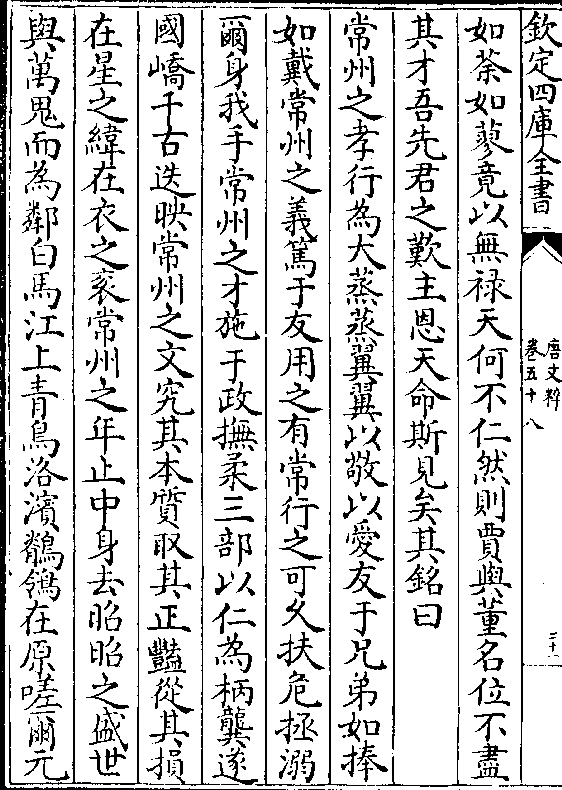 欽定四庫全書
唐文粹
卷五十八
三十一
如荼如蓼竟以無祿天何不仁然則賈與董名位不盡
其才吾先君之歎主恩天命斯見矣其銘曰
常州之孝行為大蒸蒸翼翼以敬以愛友于兄弟如捧
如戴常州之義篤于友用之有常行之可久扶危拯溺
爾身我手常州之才施于政撫柔三部以仁為柄龔遂
國嶠千古迭映常州之文究其本質取其正豔從其損
在星之緯在衣之袞常州之年止中身去昭昭之盛世
與萬鬼而為鄰白馬江上青烏洛濱鶺鴒在原嗟爾元